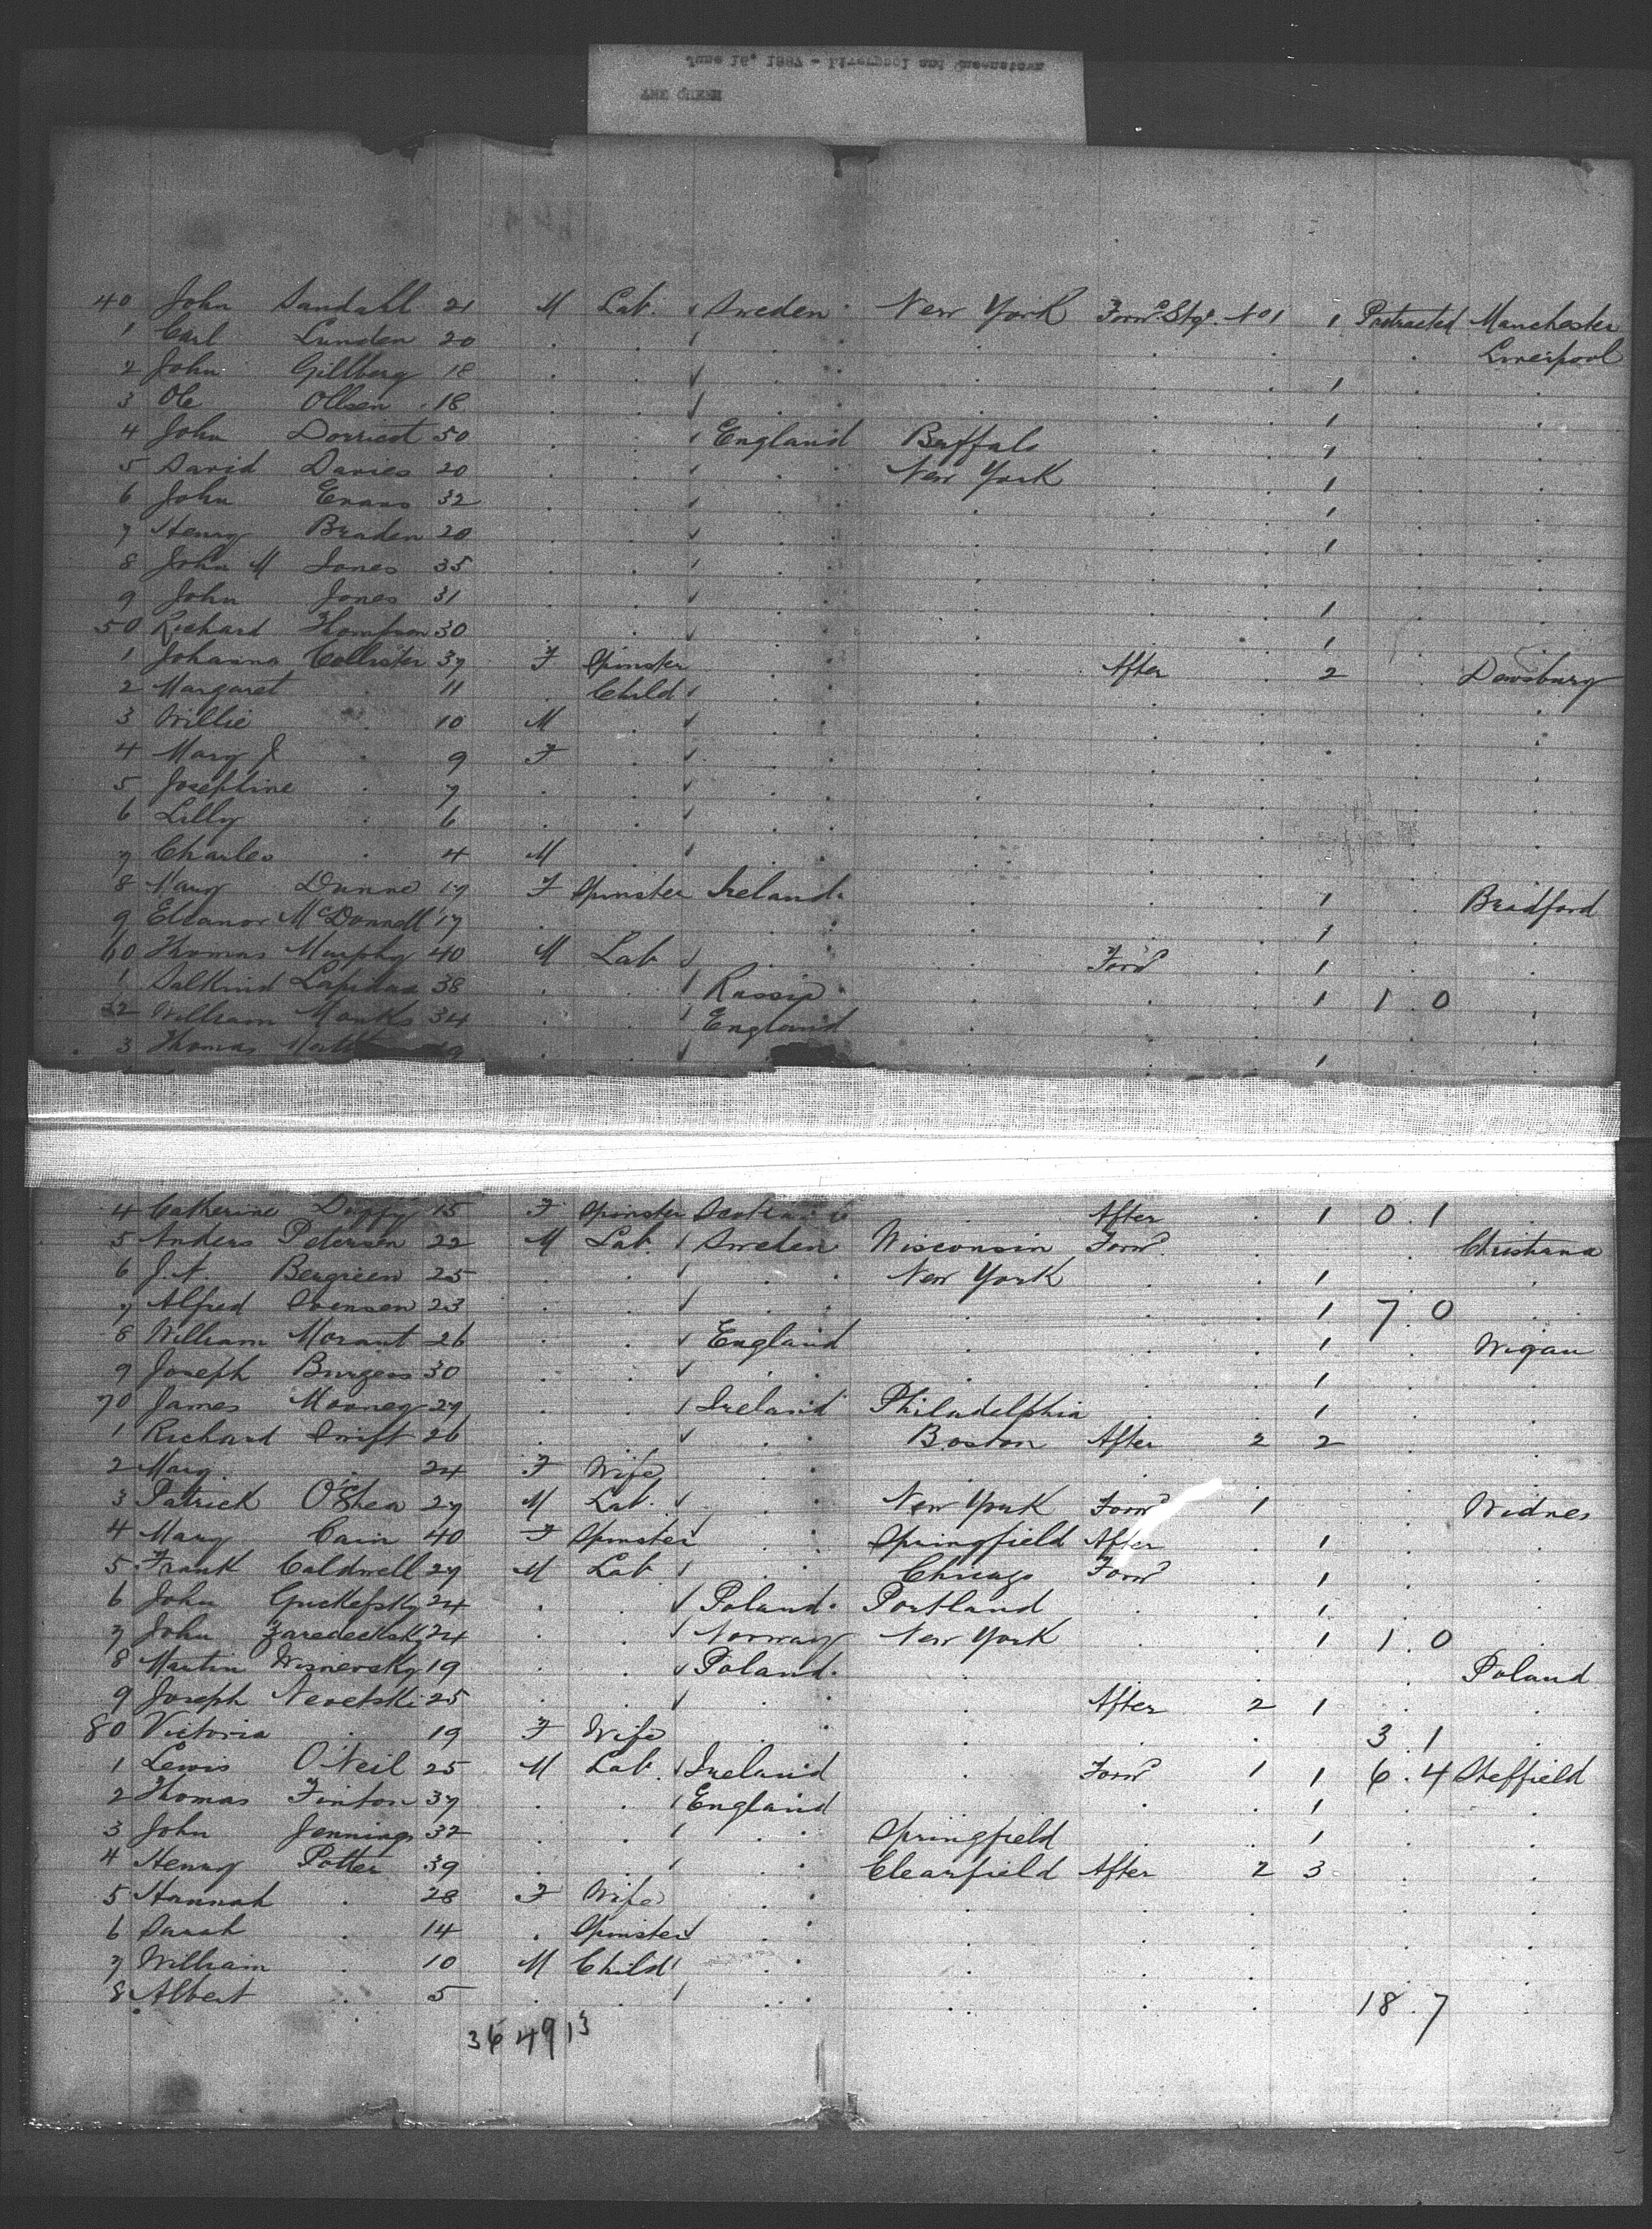 June 16, 1887 - Liverpool and Queenstown
THE QUEEN
40 John Sandahl 21 M Lab. Sweden New York Forwd Stge. No 1 1 Protracted Manchester
1 Carl Lunden 20 Liverpool
2 John Gillberg 18 1
3 Ole Ollsen 18 1
4 John Dorricot 50 England Buffalo 1
5 David Davies 20 New York 1
6 John Evans 32 1
7 Henry Braden 20 1
8 John M Jones 35
9 John Jones 31 1
50 Richard Thompson 30 1
1 Johanna Collister 37 F Spinster After 2 Dewsbury
2 Margaret 11 Child
3 Willie 10 M
4 Mary J 9 F
5 Josephine 7
6 Lilly 6
7 Charles 4 M
8 Mary Dunne 17 F Spinster Ireland 1 Bradford
9 Eleanor McDonnell 17 1
60 Thomas Murphy 40 M Lab Forwd 1
1 Salkind Lapidas 38 Russia 1 1.0
2 William Monks 34 England
3 Thomas 1
4 Catherine Duffy 15 F Spinster Scotland After 1 0.1
5 Anders Petersen 22 M Lab. Sweden Wisconsin Forwd Christiana
6 J.A. Bergreen 25 New York 1
7 Alfred Svensen 23 1 7.0
8 William Morant 26 England 1 Wigan
9 Joseph Burgess 30 1
70 James Mooney 27 Ireland Philadelphia 1
1 Richard Swift 26 Boston After 2 2
2 Mary 24 F Wife
3 Patrick O'Shea 27 M Lab. New York Forwd 1 Widnes
4 Mary Cain 40 F Spinster Springfield After 1
5 Frank Caldwell 27 M Lab Chicago Forwd 1
6 John 24 Poland Portland 1
7 John 24 Norway New York 1 1.0
8 Martin Wisnevsky 19 Poland Poland
9 Joseph Nevetski 25 After 2 1
80 Victoria 19 F Wife 3.1
1 Lewis O'Neil 25 M Lab. Ireland Forwd 1 1 6.4 Sheffield
2 Thomas Finton 37 England 1
3 John Jennings 32 Springfield 1
4 Henry Potter 39 Clearfield After 2 3
5 Hannah 28 F Wife
6 Sarah 14 Spinster
7 William 10 M Child
8 Albert 5 18.7
36 49 13